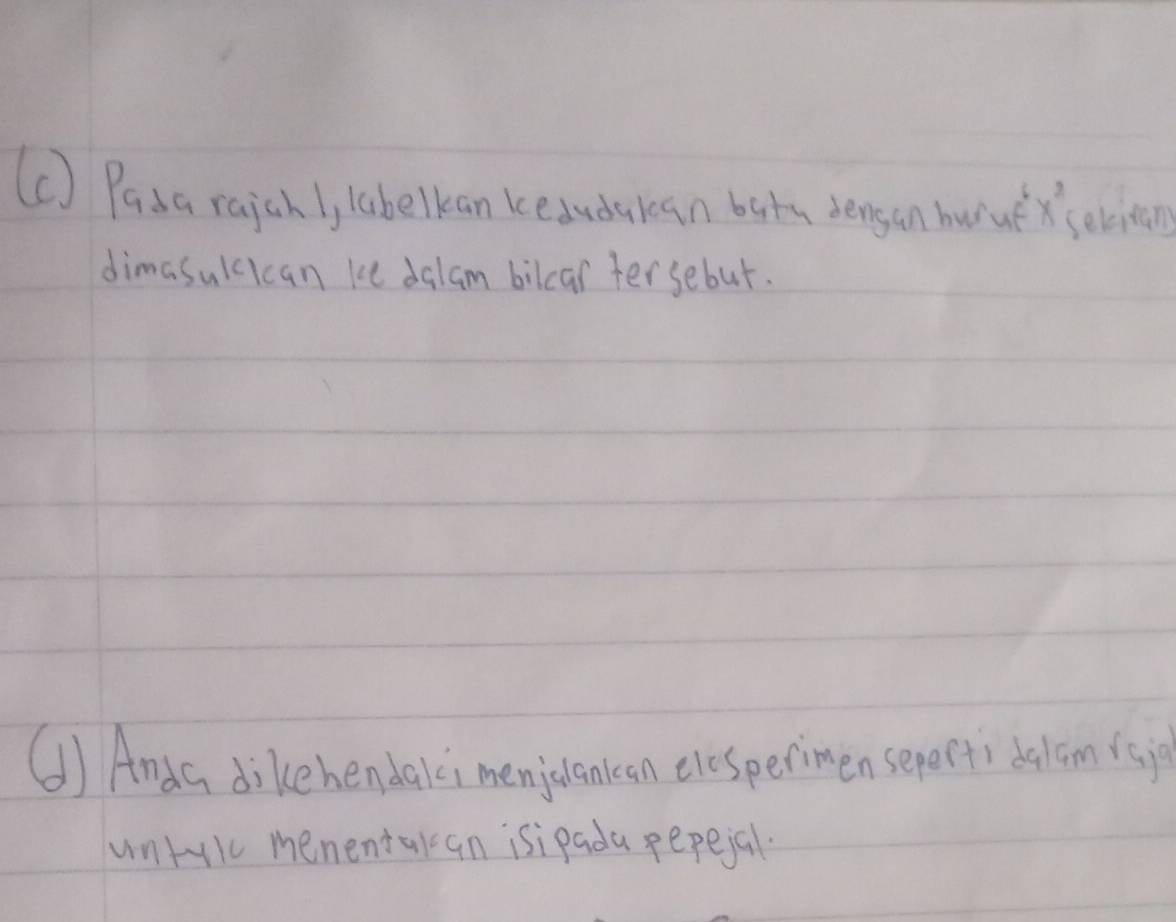 (c) Pada rajah 1, labelkan kedudukan batu dengan huruf 'x' sekiran
dimasukkan ke dalam bikar tersebut.
(d) Anda dikehendaki menjalankan eksperimen seperti dalam raja
untuk menentukan isipadu pepejal.